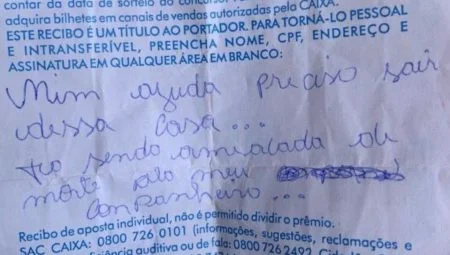 contar da data do sorteio do concurso
adquira bilhetes em canais de vendas autorizadas pela CAIXA.
ESTE RECIBO É UM TÍTULO AO PORTADOR. PARA TORNÁ-LO PESSOAL
E INTRANSFERÍVEL, PREENCHA NOME, CPF, ENDEREÇO E
ASSINATURA EM QUALQUER ÁREA EM BRANCO:
Mim ajuda preciso sair
dessa casa...
to sendo amiaçada de
morte pelo meu
companheiro...
Recibo de aposta individual, não é permitido dividir o prêmio.
SAC CAIXA: 0800 726 0101 (informações, sugestões, reclamações e
auditiva ou de fala: 0800 726 2492